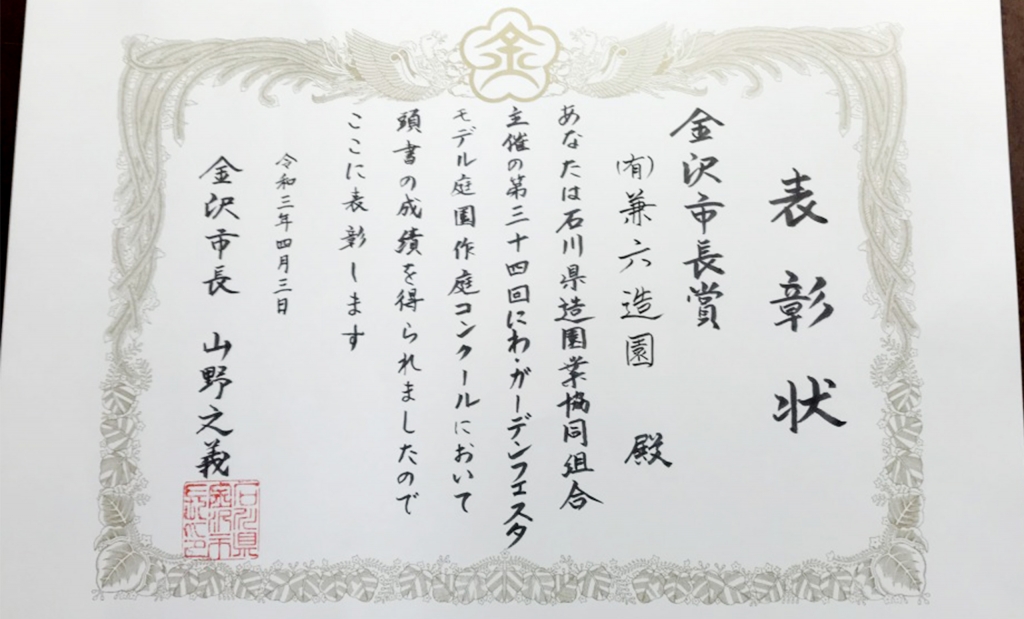 金
表彰状
金沢市長賞
(有)兼六造園 殿
あなたは石川県造園業協同組合
主催の第三十四回にわ・ガーデンフェスタ
モデル庭園作庭コンクールにおいて
頭書の成績を得られましたので
ここに表彰します
令和三年四月三日
金沢市長 山野之義
石川県
金沢市
長之印